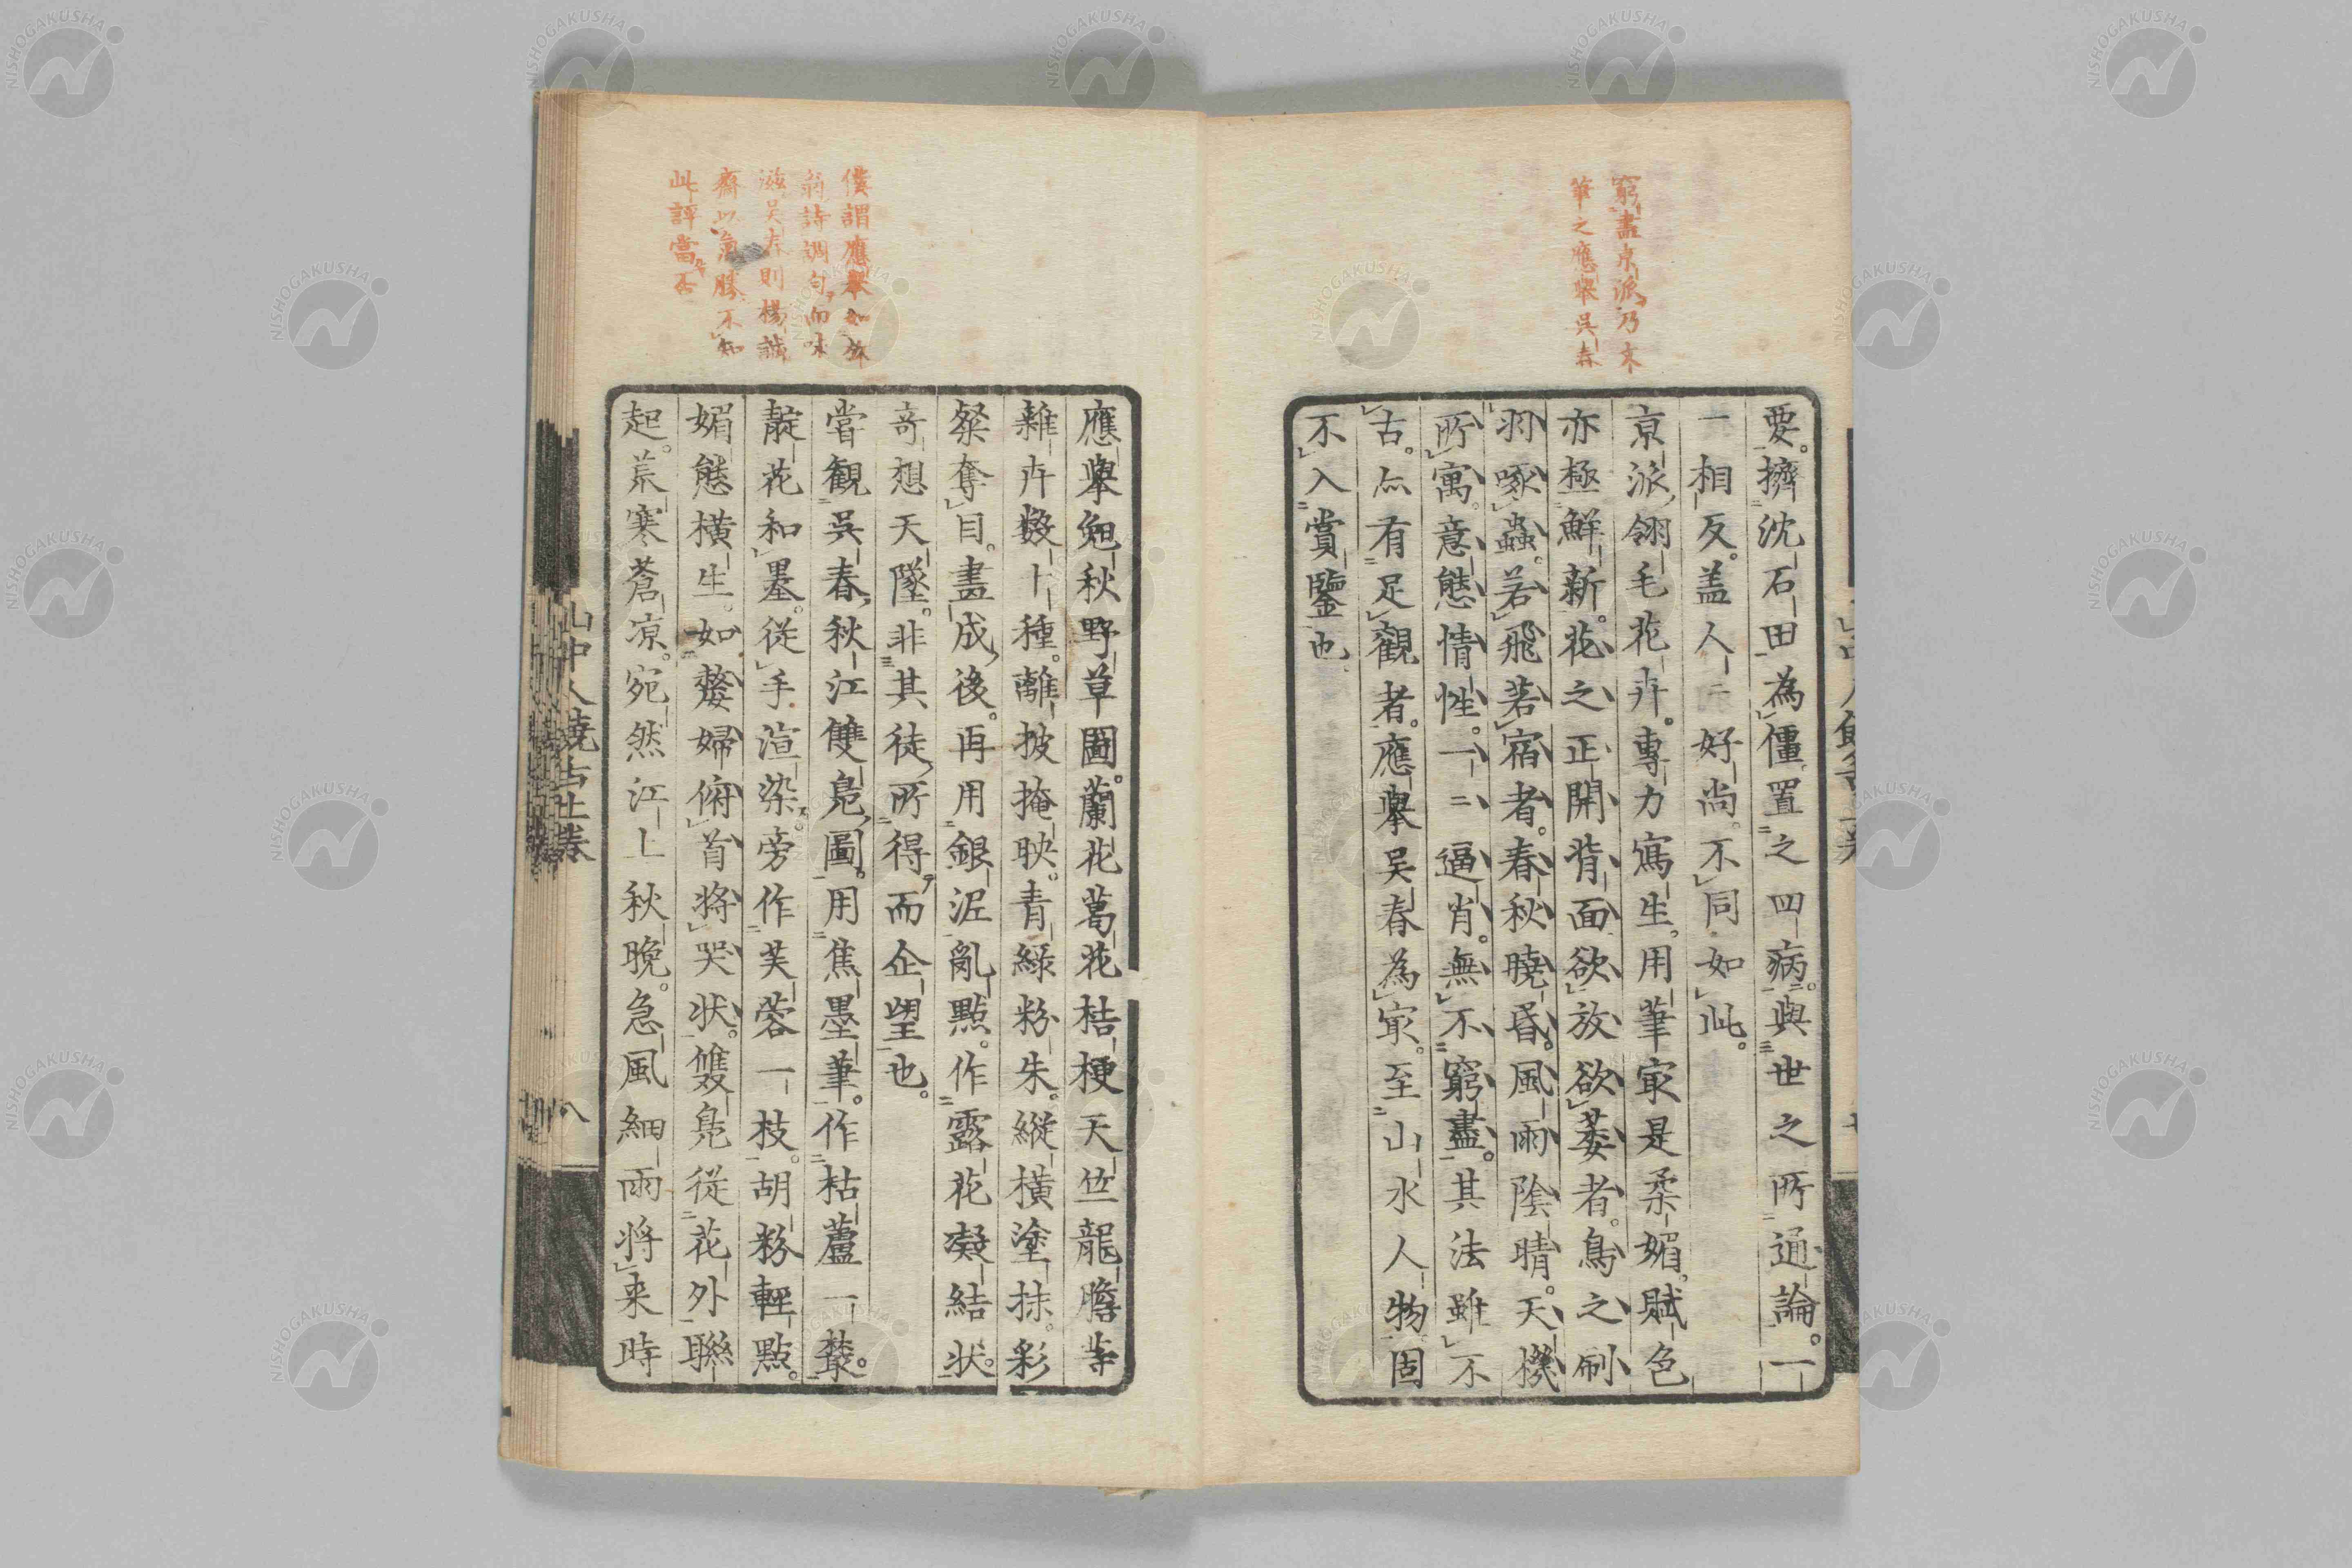 窮盡京派乃末
筆之應擧吳春
要。擠沈石田為僵置之四病。與世之所通論。一
一相反。盖人人好尚。不同如此。
京派翎毛花卉。專力寫生。用筆㝡是柔媚。賦色
亦極鮮新。花之正開背面欲放欲萎者。鳥之刷
羽啄蟲。若飛若宿者。春秋曉昏。風雨陰晴。天機
所寓。意態情性。一一逼肖。無不窮盡。其法雖不
古。亦有足觀者。應擧吳春為㝡。至山水人物固
不入賞鑒也。
僕謂應擧如
翁詩調句而味
滋吳春則楊誠
齋以氣勝不知
此評當否
應擧兔秋野草圖。蘭花葛花桔梗天竺龍膽等
雜卉數十種。離披掩映。青綠粉朱。縱橫塗抹。彩
粲奪目。畫成後。再用銀泥亂點。作露花凝結狀。
奇想天墜。非其徒所得而企望也。
嘗觀吳春秋江雙鳧圖。用焦墨筆。作枯蘆一叢。
靛花和墨。從手渲染。旁作芙蓉一枝。胡粉輕點。
媚態橫生。如嫠婦俯首將哭狀。雙鳧從花外聯
起。荒寒蒼凉。宛然江上秋晚。急風細雨將来時
山中人饒舌上卷
八